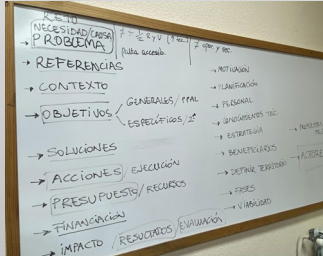 RETO
NECESIDAD/CAUSA
PROBLEMA
→ REFERENCIAS
→ CONTEXTO
→ OBJETIVOS
GENERALES/PPAL
ESPECÍFICOS/
→ SOLUCIONES
→ ACCIONES/EJECUCIÓN
→ PRESUPUESTO/RECURSOS
→ FINANCIACIÓN
→ IMPACTO/RESULTADOS/EVALUACIÓN
→ MOTIVACIÓN
→ PLANIFICACIÓN
→ PERSONAL
→ CONOCIMIENTOS TEC.
→ ESTRATEGIA
→ BENEFICIARIOS
→ DEFINIR TERRITORIO
→ FASES
→ VIABILIDAD